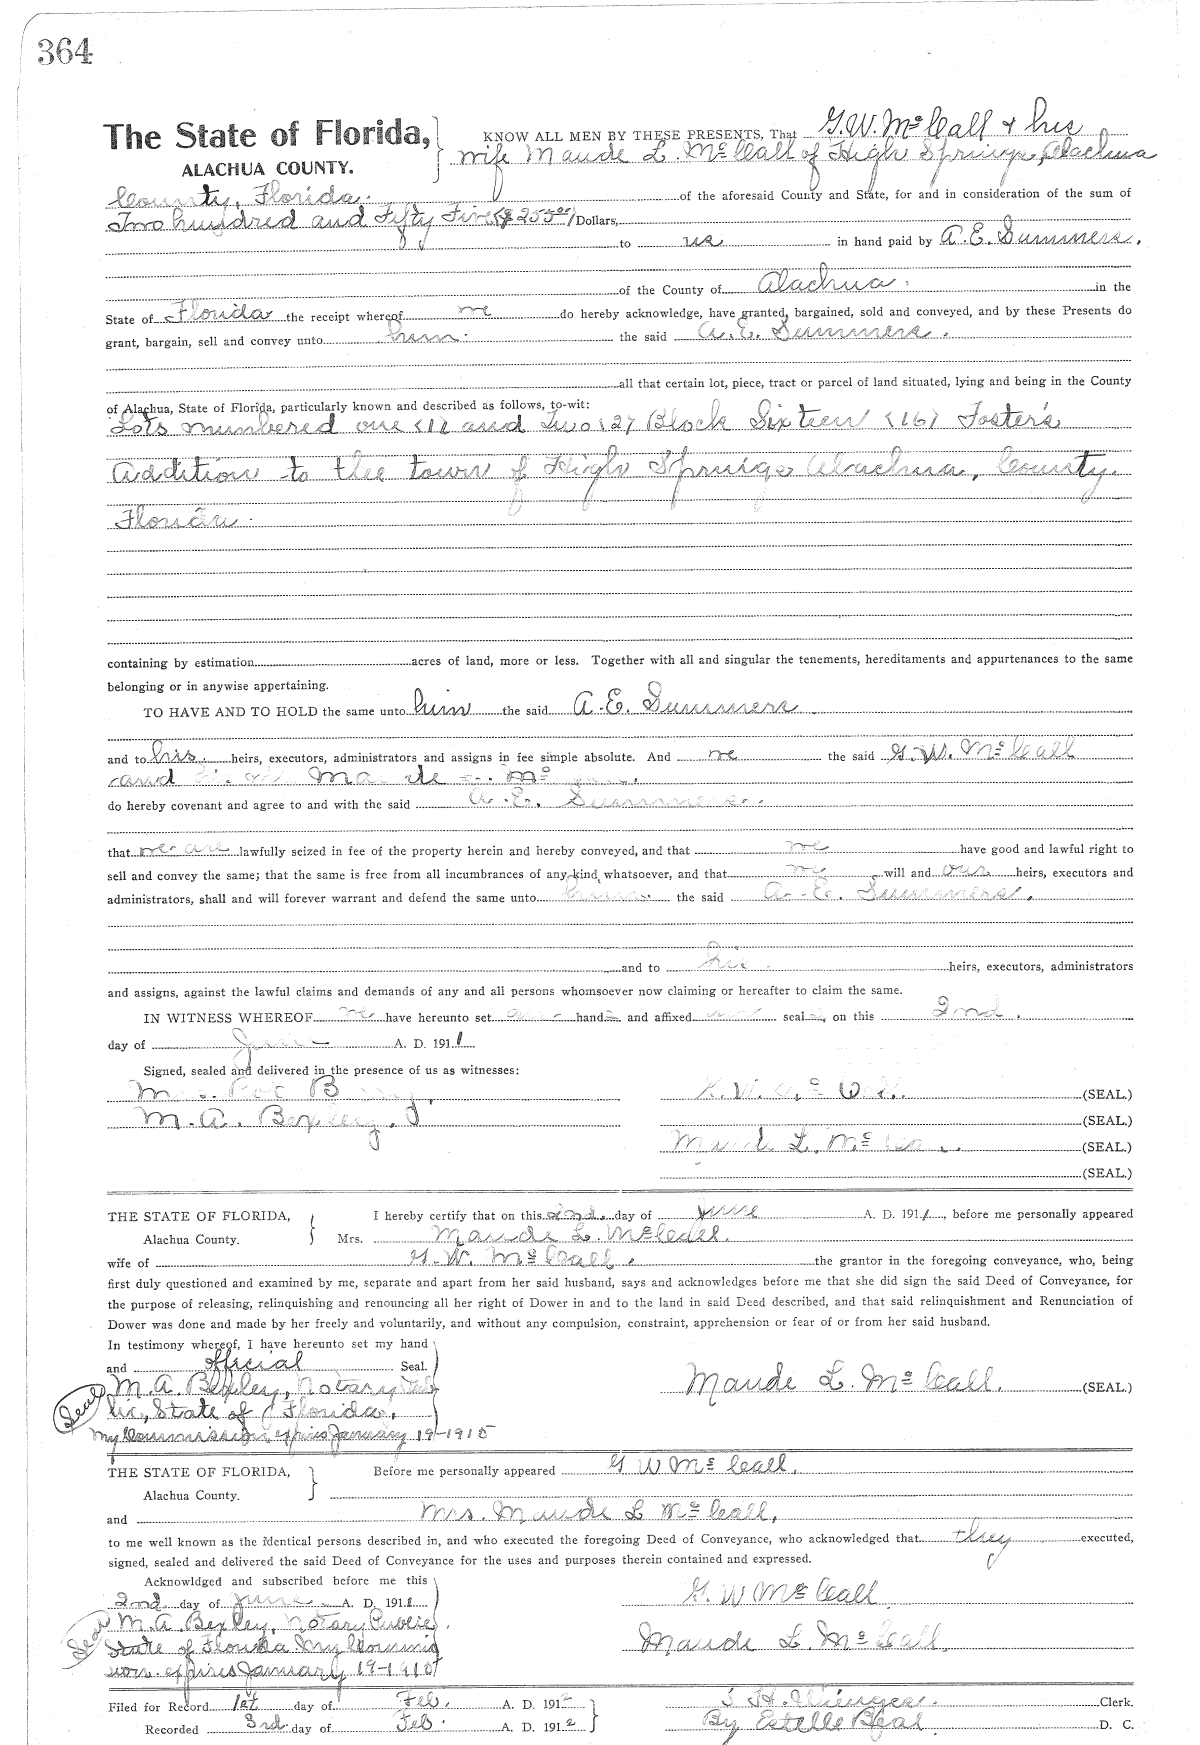 364
The State of Florida, KNOW ALL MEN BY THESE PRESENTS, That G.W. McCall & his
ALACHUA COUNTY. wife Maude L. McCall of High Springs, Alachua
County, Florida. of the aforesaid County and State, for and in consideration of the sum of
Two hundred and Fifty Five ($255.00) Dollars,
to us in hand paid by A.E. Summers.
of the County of Alachua. in the
State of Florida the receipt whereof we do hereby acknowledge, have granted, bargained, sold and conveyed, and by these Presents do
grant, bargain, sell and convey unto him. the said A.E. Summers.
all that certain lot, piece, tract or parcel of land situated, lying and being in the County
of Alachua, State of Florida, particularly known and described as follows, to-wit:
Lots numbered one (1) and Two (2) Block Sixteen (16) Foster's
Addition to the town of High Springs Alachua, County.
Florida.
containing by estimation acres of land, more or less. Together with all and singular the tenements, hereditaments and appurtenances to the same
belonging or in anywise appertaining.
TO HAVE AND TO HOLD the same unto him the said A.E. Summers
and to his. heirs, executors, administrators and assigns in fee simple absolute. And we the said G.W. McCall
and Maude Mc
do hereby covenant and agree to and with the said A.E. Summers.
that we are lawfully seized in fee of the property herein and hereby conveyed, and that we have good and lawful right to
sell and convey the same; that the same is free from all incumbrances of any kind whatsoever, and that we will and our heirs, executors and
administrators, shall and will forever warrant and defend the same unto him. the said A.E. Summers.
and to his heirs, executors, administrators
and assigns, against the lawful claims and demands of any and all persons whomsoever now claiming or hereafter to claim the same.
IN WITNESS WHEREOF we have hereunto set our hands and affixed our seals, on this 2nd.
day of June A. D. 1911
Signed, sealed and delivered in the presence of us as witnesses:
G.W. McCall. (SEAL.)
M.A. Bexley. (SEAL.)
Maude L. McCall. (SEAL.)
(SEAL.)
THE STATE OF FLORIDA, I hereby certify that on this 2nd. day of June A. D. 1911, before me personally appeared
Alachua County. Mrs. Maude L. McCall.
wife of G.W. McCall. the grantor in the foregoing conveyance, who, being
first duly questioned and examined by me, separate and apart from her said husband, says and acknowledges before me that she did sign the said Deed of Conveyance, for
the purpose of releasing, relinquishing and renouncing all her right of Dower in and to the land in said Deed described, and that said relinquishment and Renunciation of
Dower was done and made by her freely and voluntarily, and without any compulsion, constraint, apprehension or fear of or from her said husband.
In testimony whereof, I have hereunto set my hand
and official Seal.
M.A. Bexley, Notary Pub Maude L. McCall. (SEAL.)
(Seal) lic, State of Florida,
My Commission expires January 19-1915
THE STATE OF FLORIDA, Before me personally appeared G W McCall,
Alachua County.
and Mrs. Maude L McCall,
to me well known as the identical persons described in, and who executed the foregoing Deed of Conveyance, who acknowledged that they executed,
signed, sealed and delivered the said Deed of Conveyance for the uses and purposes therein contained and expressed.
Acknowldged and subscribed before me this
2nd day of June A. D. 1911 G W McCall
(Seal) M.A. Bexley, Notary Public
State of Florida My Commis Maude L. McCall.
sion expires January 19-1915
Filed for Record 1st day of Feb. A. D. 1912 Clerk.
Recorded 3rd day of Feb. A. D. 1912 By Estelle Beal D. C.